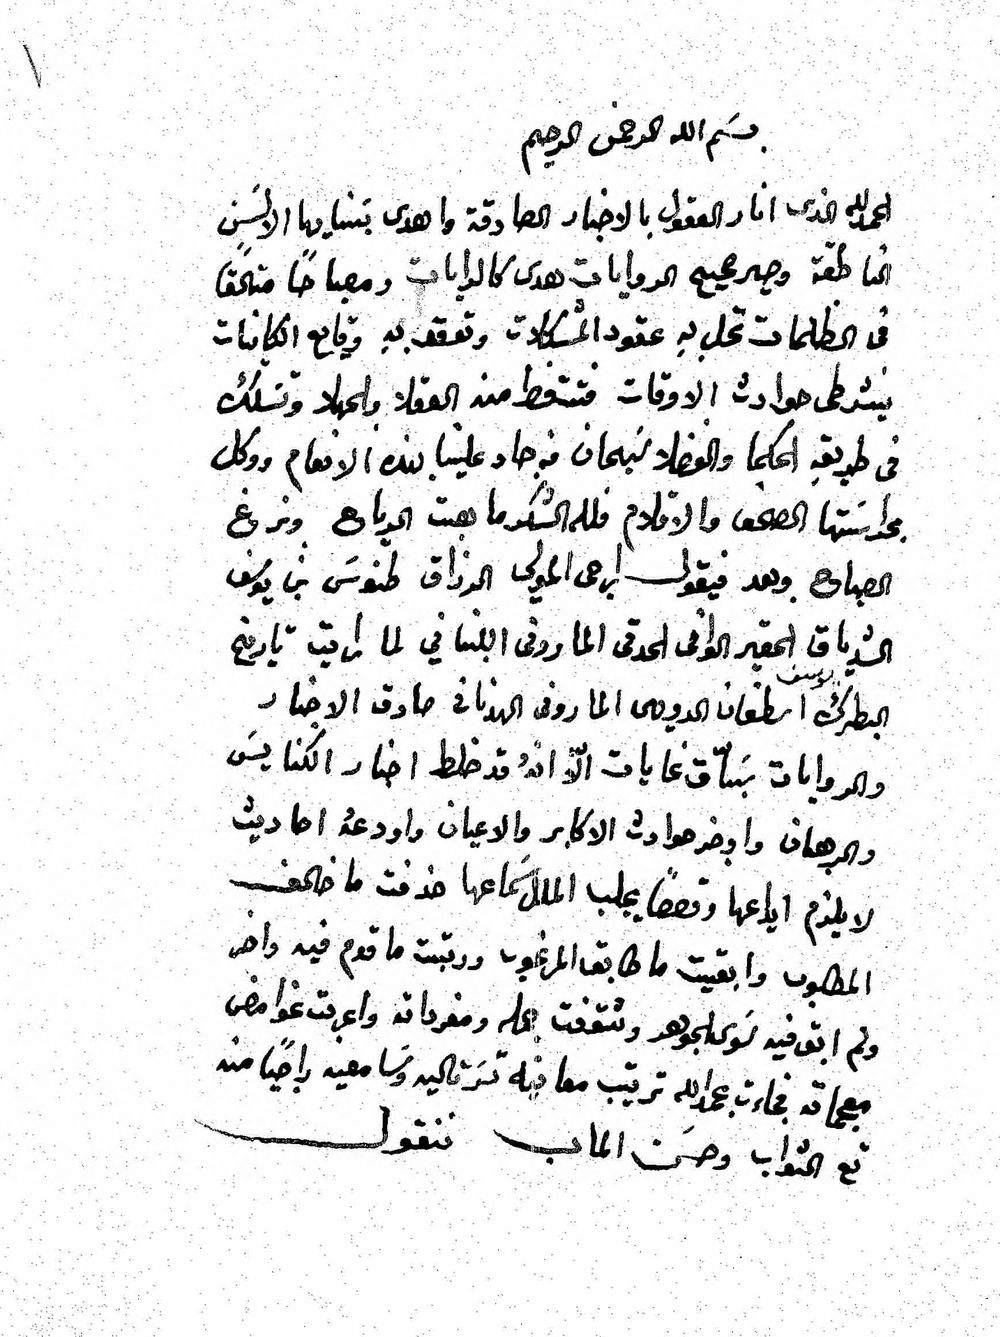 بسم الله الرحمن الرحيم
الحمد لله الذى انار العقول بالاخبار الصادقة واهدى بتبيانها الالسن
الناطقة وصير صحيح الروايات هدى كالرايات ومصباحًا متالقًا
فى الظلمات تحل به عقود المشكلات وتوقف به وقايع الكاينات
حوادث الاوقات فتتعظ منه العقلا والجهلا وتسلك
فى طريقه الحكما والفضلا فسبحان من جاد علينا بهذه الانعام ووكل
بحراستها الصحف والاقلام فلله الشكر ما هبت الرياح وبزغ
الصباح وبعد فيقول ارجى المولى الرزاق طنوس بن يوسف
الشدياق الحقير الحدثى المارونى اللبناني لما رايت تاريخ
البطرك اسطفان يوسف الدويهى المارونى اللبنانى صادق الاخبار
والروايات سباق غايات الّا انهُ قد خلط اخبار الكنايس
والرهبان واوضح حوادث الاكابر والاعيان واودعهُ احاديث
لا يلزم ايداعها وقصصًا يجلب الملل سماعها حذفت ما خالف
المطلوب وابقيت ما طابق المرغوب ورتبت ما قدم فيه واخر
ولم ابق فيه سوى الجوهر وثقفت جمله ومفرداته واعربت غوامض
معجماته فجاءت بحمد الله ترتيب معانيه تسر تاليه وسامعيه راجيًا منه
تع الثواب وحسن الماب فنقول